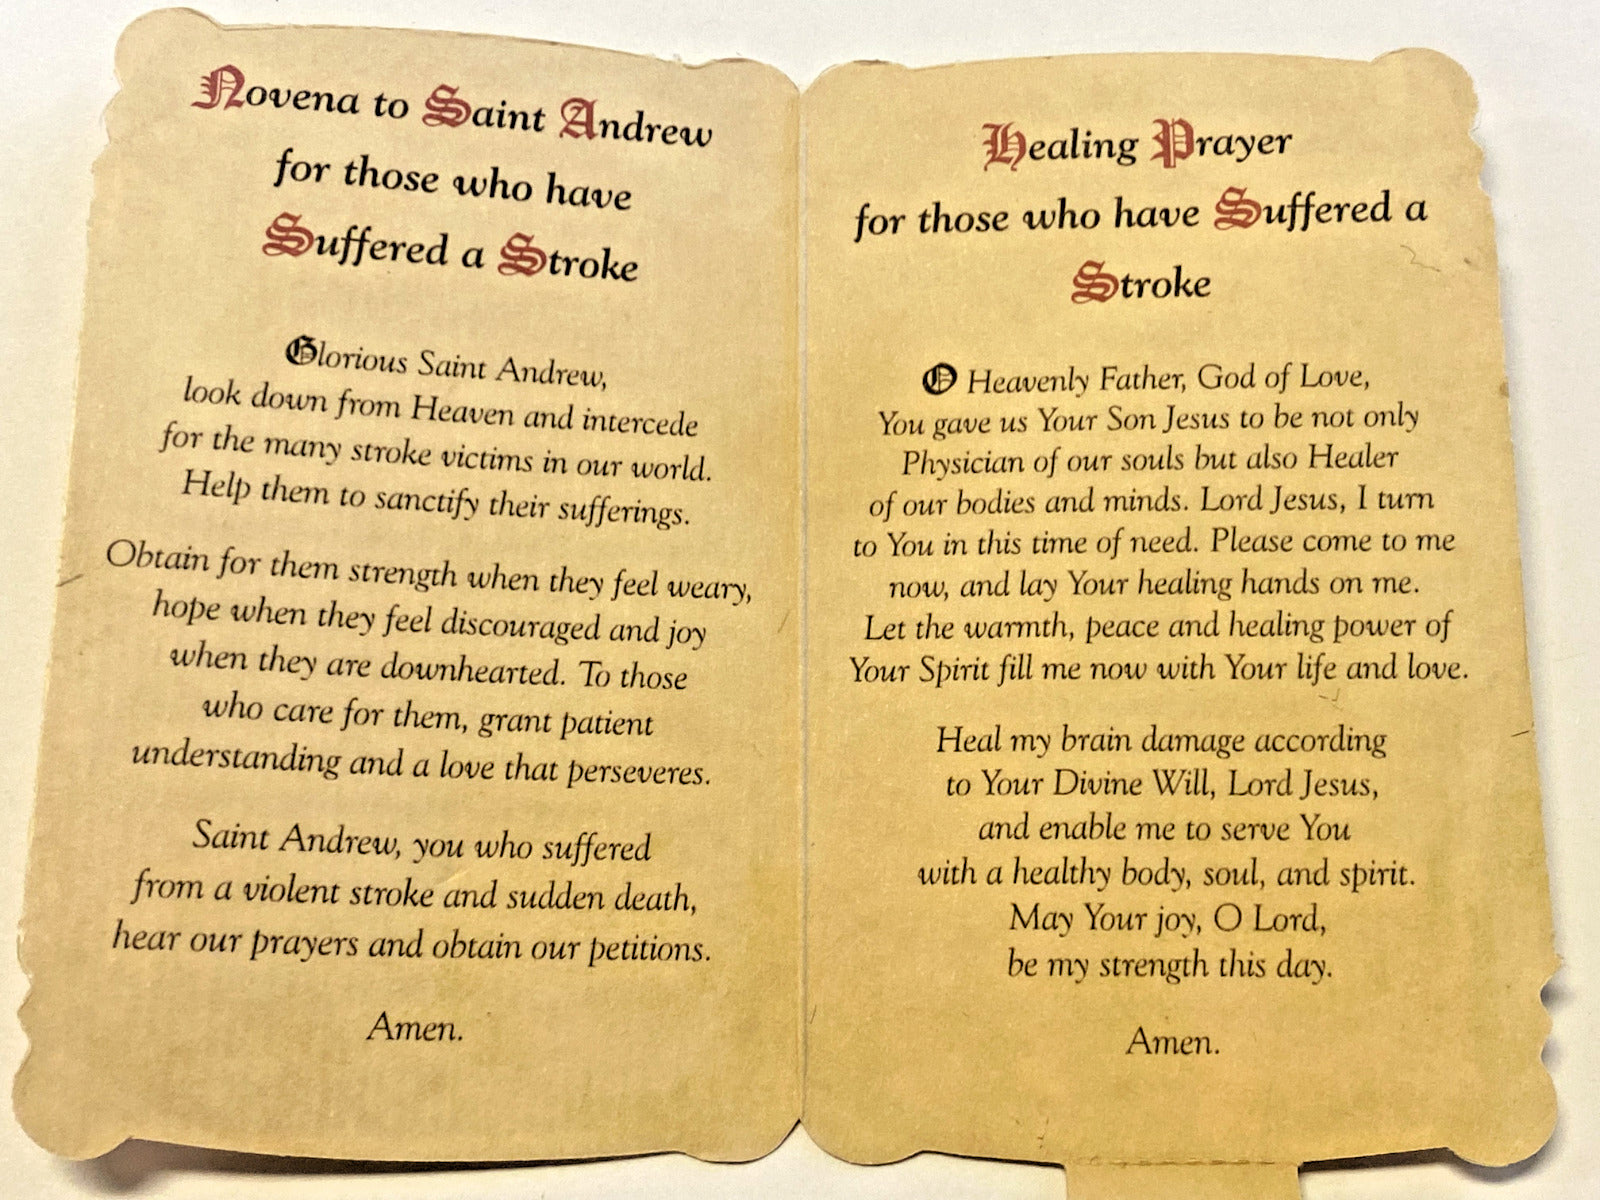 Novena to Saint Andrew
for those who have
Suffered a Stroke
Glorious Saint Andrew,
look down from Heaven and intercede
for the many stroke victims in our world.
Help them to sanctify their sufferings.
Obtain for them strength when they feel weary,
hope when they feel discouraged and joy
when they are downhearted. To those
who care for them, grant patient
understanding and a love that perseveres.
Saint Andrew, you who suffered
from a violent stroke and sudden death,
hear our prayers and obtain our petitions.
Amen.
Healing Prayer
for those who have Suffered a
Stroke
O Heavenly Father, God of Love,
You gave us Your Son Jesus to be not only
Physician of our souls but also Healer
of our bodies and minds. Lord Jesus, I turn
to You in this time of need. Please come to me
now, and lay Your healing hands on me.
Let the warmth, peace and healing power of
Your Spirit fill me now with Your life and love.
Heal my brain damage according
to Your Divine Will, Lord Jesus,
and enable me to serve You
with a healthy body, soul, and spirit.
May Your joy, O Lord,
be my strength this day.
Amen.